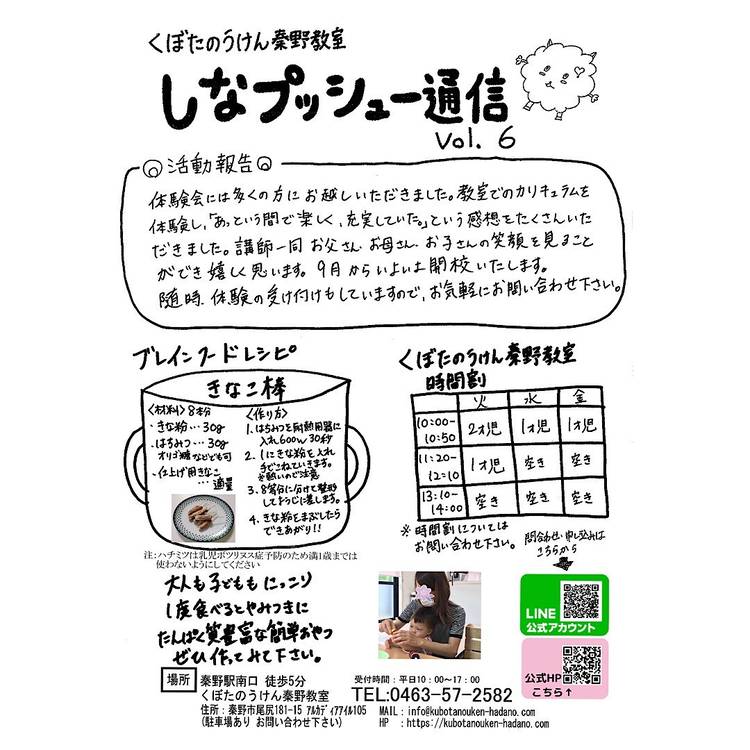 くぼたのうけん秦野教室
しなプッシュー通信
Vol. 6
活動報告
体験会には多くの方にお越しいただきました。教室でのカリキュラムを
体験し、「あっという間で楽しく、充実していた。」という感想をたくさんいた
だきました。講師一同 お父さん、お母さん、お子さんの笑顔を見ること
ができ嬉しく思います。9月からいよいよ開校いたします。
随時、体験の受け付けもしていますので、お気軽にお問い合わせ下さい。
ブレインフードレシピ
きなこ棒
〈材料〉8本分
・きな粉…30g
・はちみつ…30g
オリゴ糖などでも可
・仕上げ用きなこ
…適量
〈作り方〉
1.はちみつを耐熱用器に
入れ600w 30秒
2.1にきな粉を入れ
手でこねていきます。
※熱いのご注意
3.8等分に分けて整形
してようじに差します。
4.きな粉をまぶしたら
できあがり!!
注:ハチミツは乳児ボツリヌス症予防のため満1歳までは
使わないようにしてください
大人も子どももにっこり
1度食べるとやみつきに
たんぱく質豊富な簡単おやつ
ぜひ作ってみて下さい。
くぼたのうけん秦野教室
時間割
火 水 金
10:00-10:50 2才児 1才児 1才児
11:20-12:10 1才児 空き 空き
13:10-14:00 空き 空き 空き
※時間割については
お問い合わせ下さい。
問合わせ・申し込みは
こちらから
LINE
公式アカウント
公式HP
こちら↑
場所
秦野駅南口 徒歩5分
くぼたのうけん秦野教室
住所:秦野市尾尻181-15 アルカディアアイル105
(駐車場あり お問い合わせ下さい)
受付時間:平日10:00～17:00
TEL:0463-57-2582
MAIL:info@kubotanouken-hadano.com
HP :https://kubotanouken-hadano.com